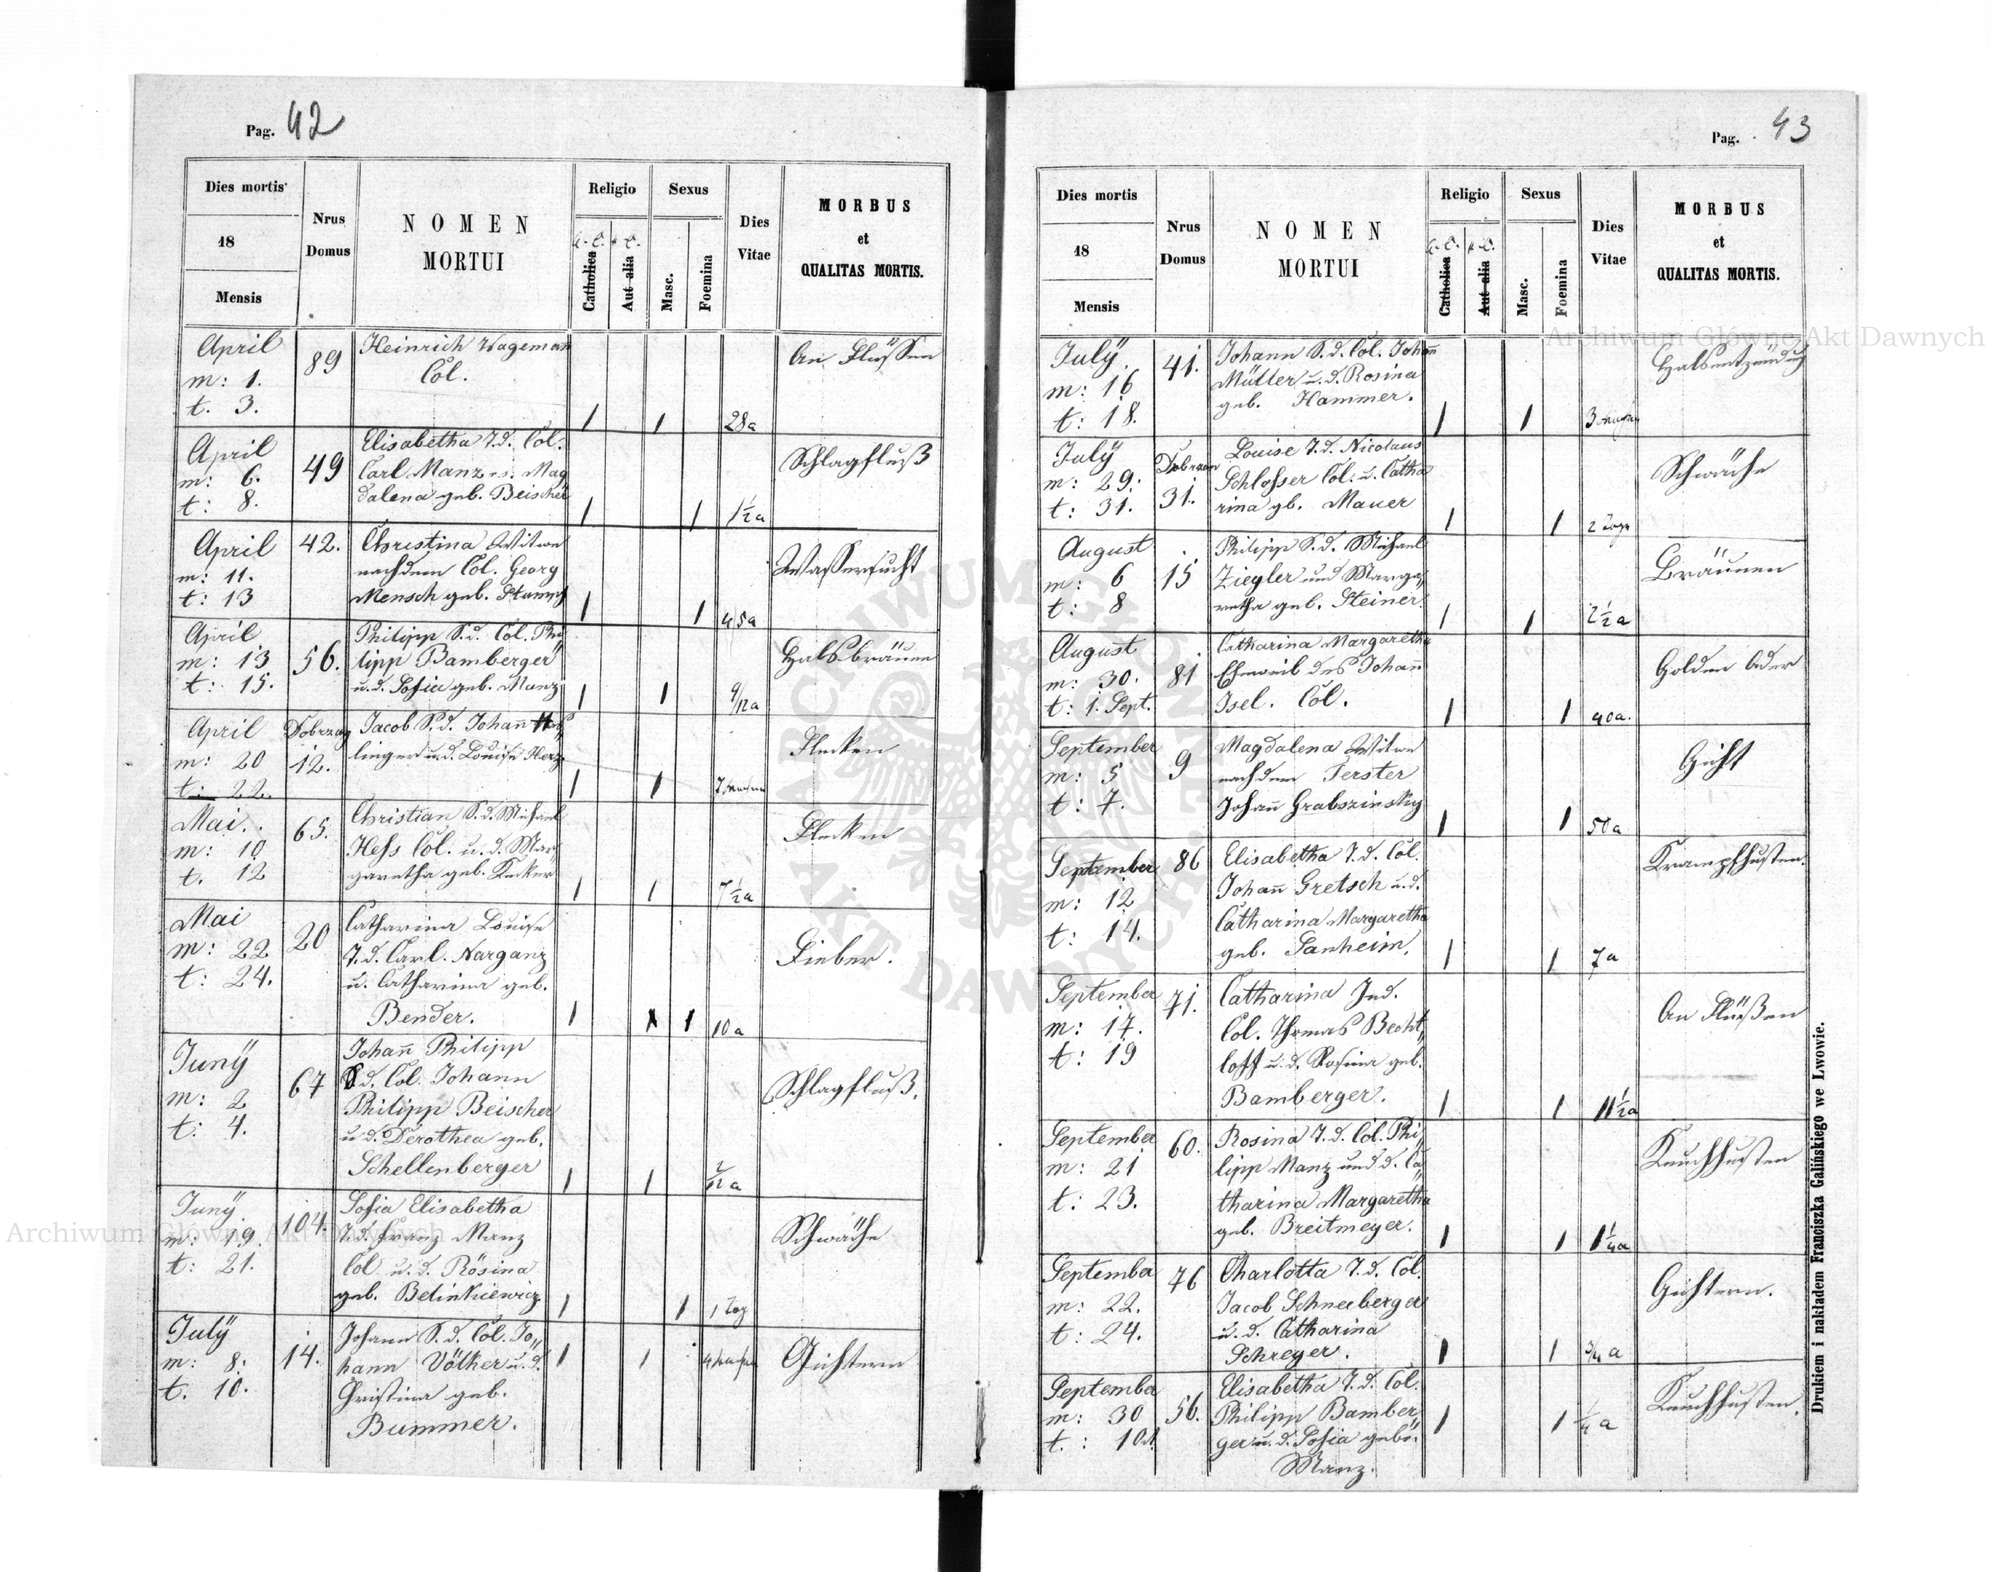 Pag. 42
Dies mortis
18
Mensis
Nrus
Domus
NOMEN
MORTUI
Religio
A. C. H. C.
Catholica
Aut alia
Sexus
Masc.
Foemina
Dies
Vitae
MORBUS
et
QUALITAS MORTIS.
April
m: 1.
t. 3.
89
Heinrich Wagemann
Col.
1 1 28a
An Flüssen
April
m: 6.
t: 8.
49
Elisabetha T.d. Col.
Carl Manz u. Mag
dalena geb. Beischer
1 1 1½a
Schlagfluß
April
m: 11.
t: 13
42.
Christina Witwe
nach dem Col. Georg
Mensch geb. Stumpf
1 1 45a
Wassersucht
April
m: 13
t: 15.
56.
Philipp S.d. Col. Phi
lipp Bamberger
u.d. Sofia geb. Manz
1 1 9/12a
Halsbräune
April
m: 20
t: 22.
Dobrzan
12.
Jacob S.d. Johann
linger u.d. Louise Herz
1 1
Flecken
Mai.
m: 10
t. 12
65.
Christian S.d. Michael
Hess Col. u. d. Mar
garetha geb. Kecker
1 1 7½a
Flecken
Mai
m: 22
t: 24.
20
Catharina Louise
T.d. Carl. Narganz
u. Catharina geb.
Bender.
1 1 10a
Fieber.
Juny
m: 2
t: 4.
67
Johann Philipp
S.d. Col. Johann
Philipp Beischer
u d. Dorothea geb.
Schellenberger
1 1 2/12a
Schlagfluß.
Juny
m: 19.
t: 21.
104.
Sofia Elisabetha
T.d. Franz Manz
Col u. d. Rosina
geb. Betinkiewicz
1 1 1 Tag
Schwäche
July
m: 8.
t. 10.
14.
Johann S.d. Col. Jo„
hann Völker u. d.
Christina geb.
Bummer.
1 1
Gichtern
Pag. 43
Dies mortis
18
Mensis
Nrus
Domus
NOMEN
MORTUI
Religio
A. C. H. C.
Catholica
Aut alia
Sexus
Masc.
Foemina
Dies
Vitae
MORBUS
et
QUALITAS MORTIS.
July.
m: 16
t: 18.
41.
Johann S.d. Col. Johann
Müller u. d. Rosina
geb. Hammer.
1 1
Halsentzündung
July
m: 29.
t: 31.
Dobrzan
31.
Louise T.d. Nicolaus
Schlosser Col. u. Catha
rina gb. Mauer
1 1 2 Tage
Schwäche
August
m: 6
t: 8
15
Philipp S.d. Michael
Ziegler und Marga„
retha geb. Steiner.
1 1 2½a
Bräunen
August
m: 30.
t: 1. Sept.
81
Catharina Margaretha
Eheweib des Johann
Isel. Col.
1 1 40a.
Golden Ader
September
m: 5
t: 7.
9
Magdalena Witwe
nach dem Ferster
Johann Grabszinsky
1 1 50a
Gicht
September
m: 12
t: 14.
86
Elisabetha T.d. Col.
Johann Gretsch u. d.
Catharina Margaretha
geb. Sanheim.
1 1 7a
Krampfhusten.
September
m: 17.
t: 19
71.
Catharina T.d.
Col. Thomas Becht„
loff u. d. Rosina geb.
Bamberger.
1 1 11½a
An Flüßen
September
m: 21
t: 23.
60.
Rosina T.d. Col. Phi„
lipp Manz und d. Ca„
tharina Margaretha
geb. Breitmeyer.
1 1 1¼a
Keuchhusten
September
m: 22.
t: 24.
76
Charlotta T.d. Col.
Jacob Schneeberger
u. d. Catharina
Schreyer.
1 1 ¾a
Gichtern.
September
m: 30
t. : 1 Oct.
56.
Elisabetha T.d. Col.
Philipp Bamber„
ger u. d. Sofia geb.
Manz.
1 1 ¼a
Keuchhusten.
Drukiem i nakładem Franciszka Galińskiego we Lwowie.
Archiwum Główne Akt Dawnych
Archiwum Główne Akt Dawnych
ARCHIWUM GŁÓWNE AKT DAWNYCH